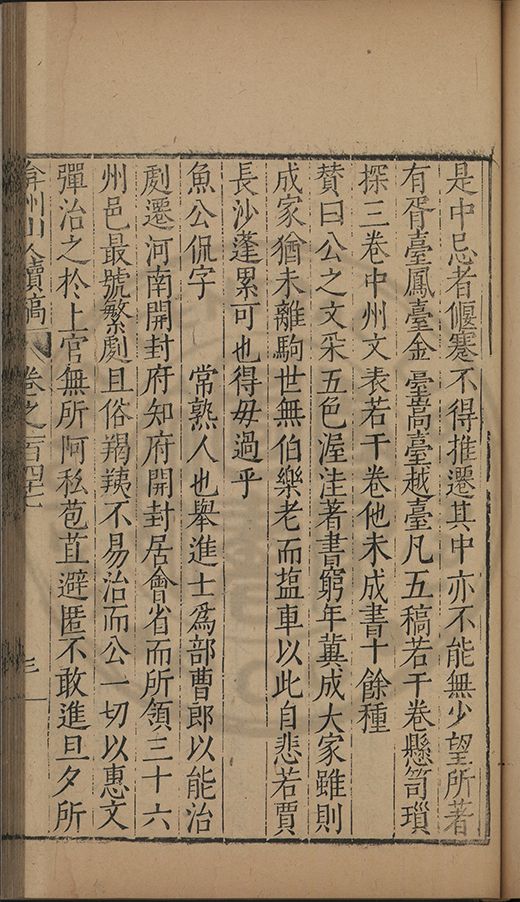 是中忌者偃蹇不得推遷其中亦不能無少望所著
有胥臺鳳臺金臺嵩臺越臺凡五稿若干卷懸笥瑣
探三卷中州文表若干卷他未成書十餘種
賛曰公之文采五色渥洼著書窮年冀成大家雖則
成家猶未離駒世無伯樂老而塩車以此自悲若賈
長沙蓬累可也得毋過乎
魚公侃字　　常熟人也舉進士爲部曹郎以能治
劇遷河南開封府知府開封居會省而所領三十六
州邑最號繁劇且俗羯羠不易治而公一切以惠文
彈治之於上官無所阿私苞苴避匿不敢進旦夕所
弇州山人續稿　卷之一百四十七　三